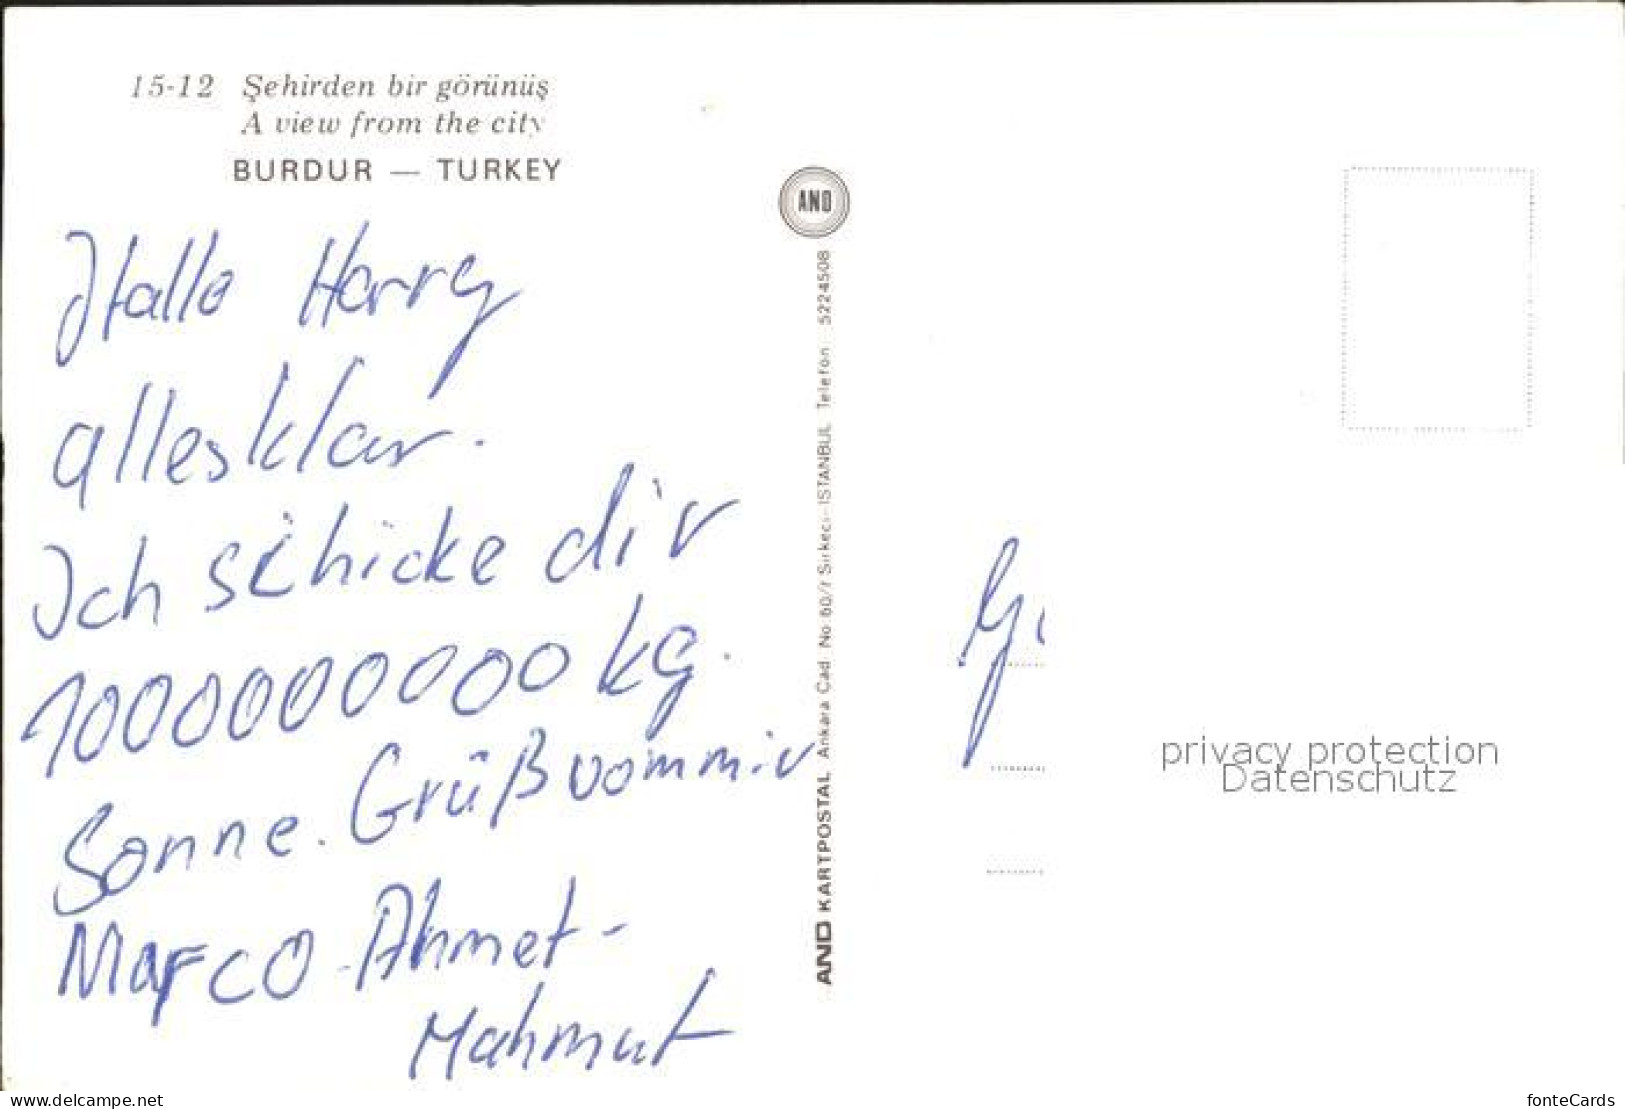 15-12 Şehirden bir görünüş
A view from the city
BURDUR — TURKEY
Hallo Harry
alles klar.
Ich schicke dir
1000000000 kg.
Sonne. Grüß vom mir
Marco - Ahmet -
Mahmut
AND
AND KARTPOSTAL Ankara Cad No 60/1 Sirkeci-ISTANBUL Telefon: 5224508
privacy protection
Datenschutz
www.delcampe.net
fonteCards